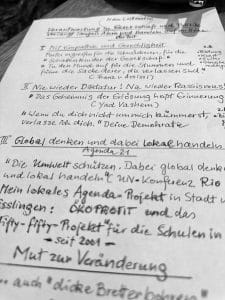 Mein Leitmotiv
Verantwortung
I Mit Empathie und Gerechtigkeit
der Gesellschaft."
"Tu den Mund auf für die Stummen und
für die Sache derer, die verlassen sind"
II Nie wieder Diktatur! Nie wieder Rassismus!
"Das Geheimnis der Erlösung heißt Erinnerung"
(Yad Vashem)
"Wenn du dich nicht um mich kümmerst,
verlasse ich dich." Deine Demokratie
III Global denken und dabei lokal handeln
Agenda 21
"Die Umwelt schützen. Dabei global denken
und lokal handeln" UN-Konferenz Rio
Mein lokales Agenda-Projekt in Stadt u
Esslingen: ÖKOPROFIT und das
Fifty-fifty-Projekt" für die Schulen in
- seit 2001 -
Mut zur Veränderung
... auch "dicke Bretter bohren"